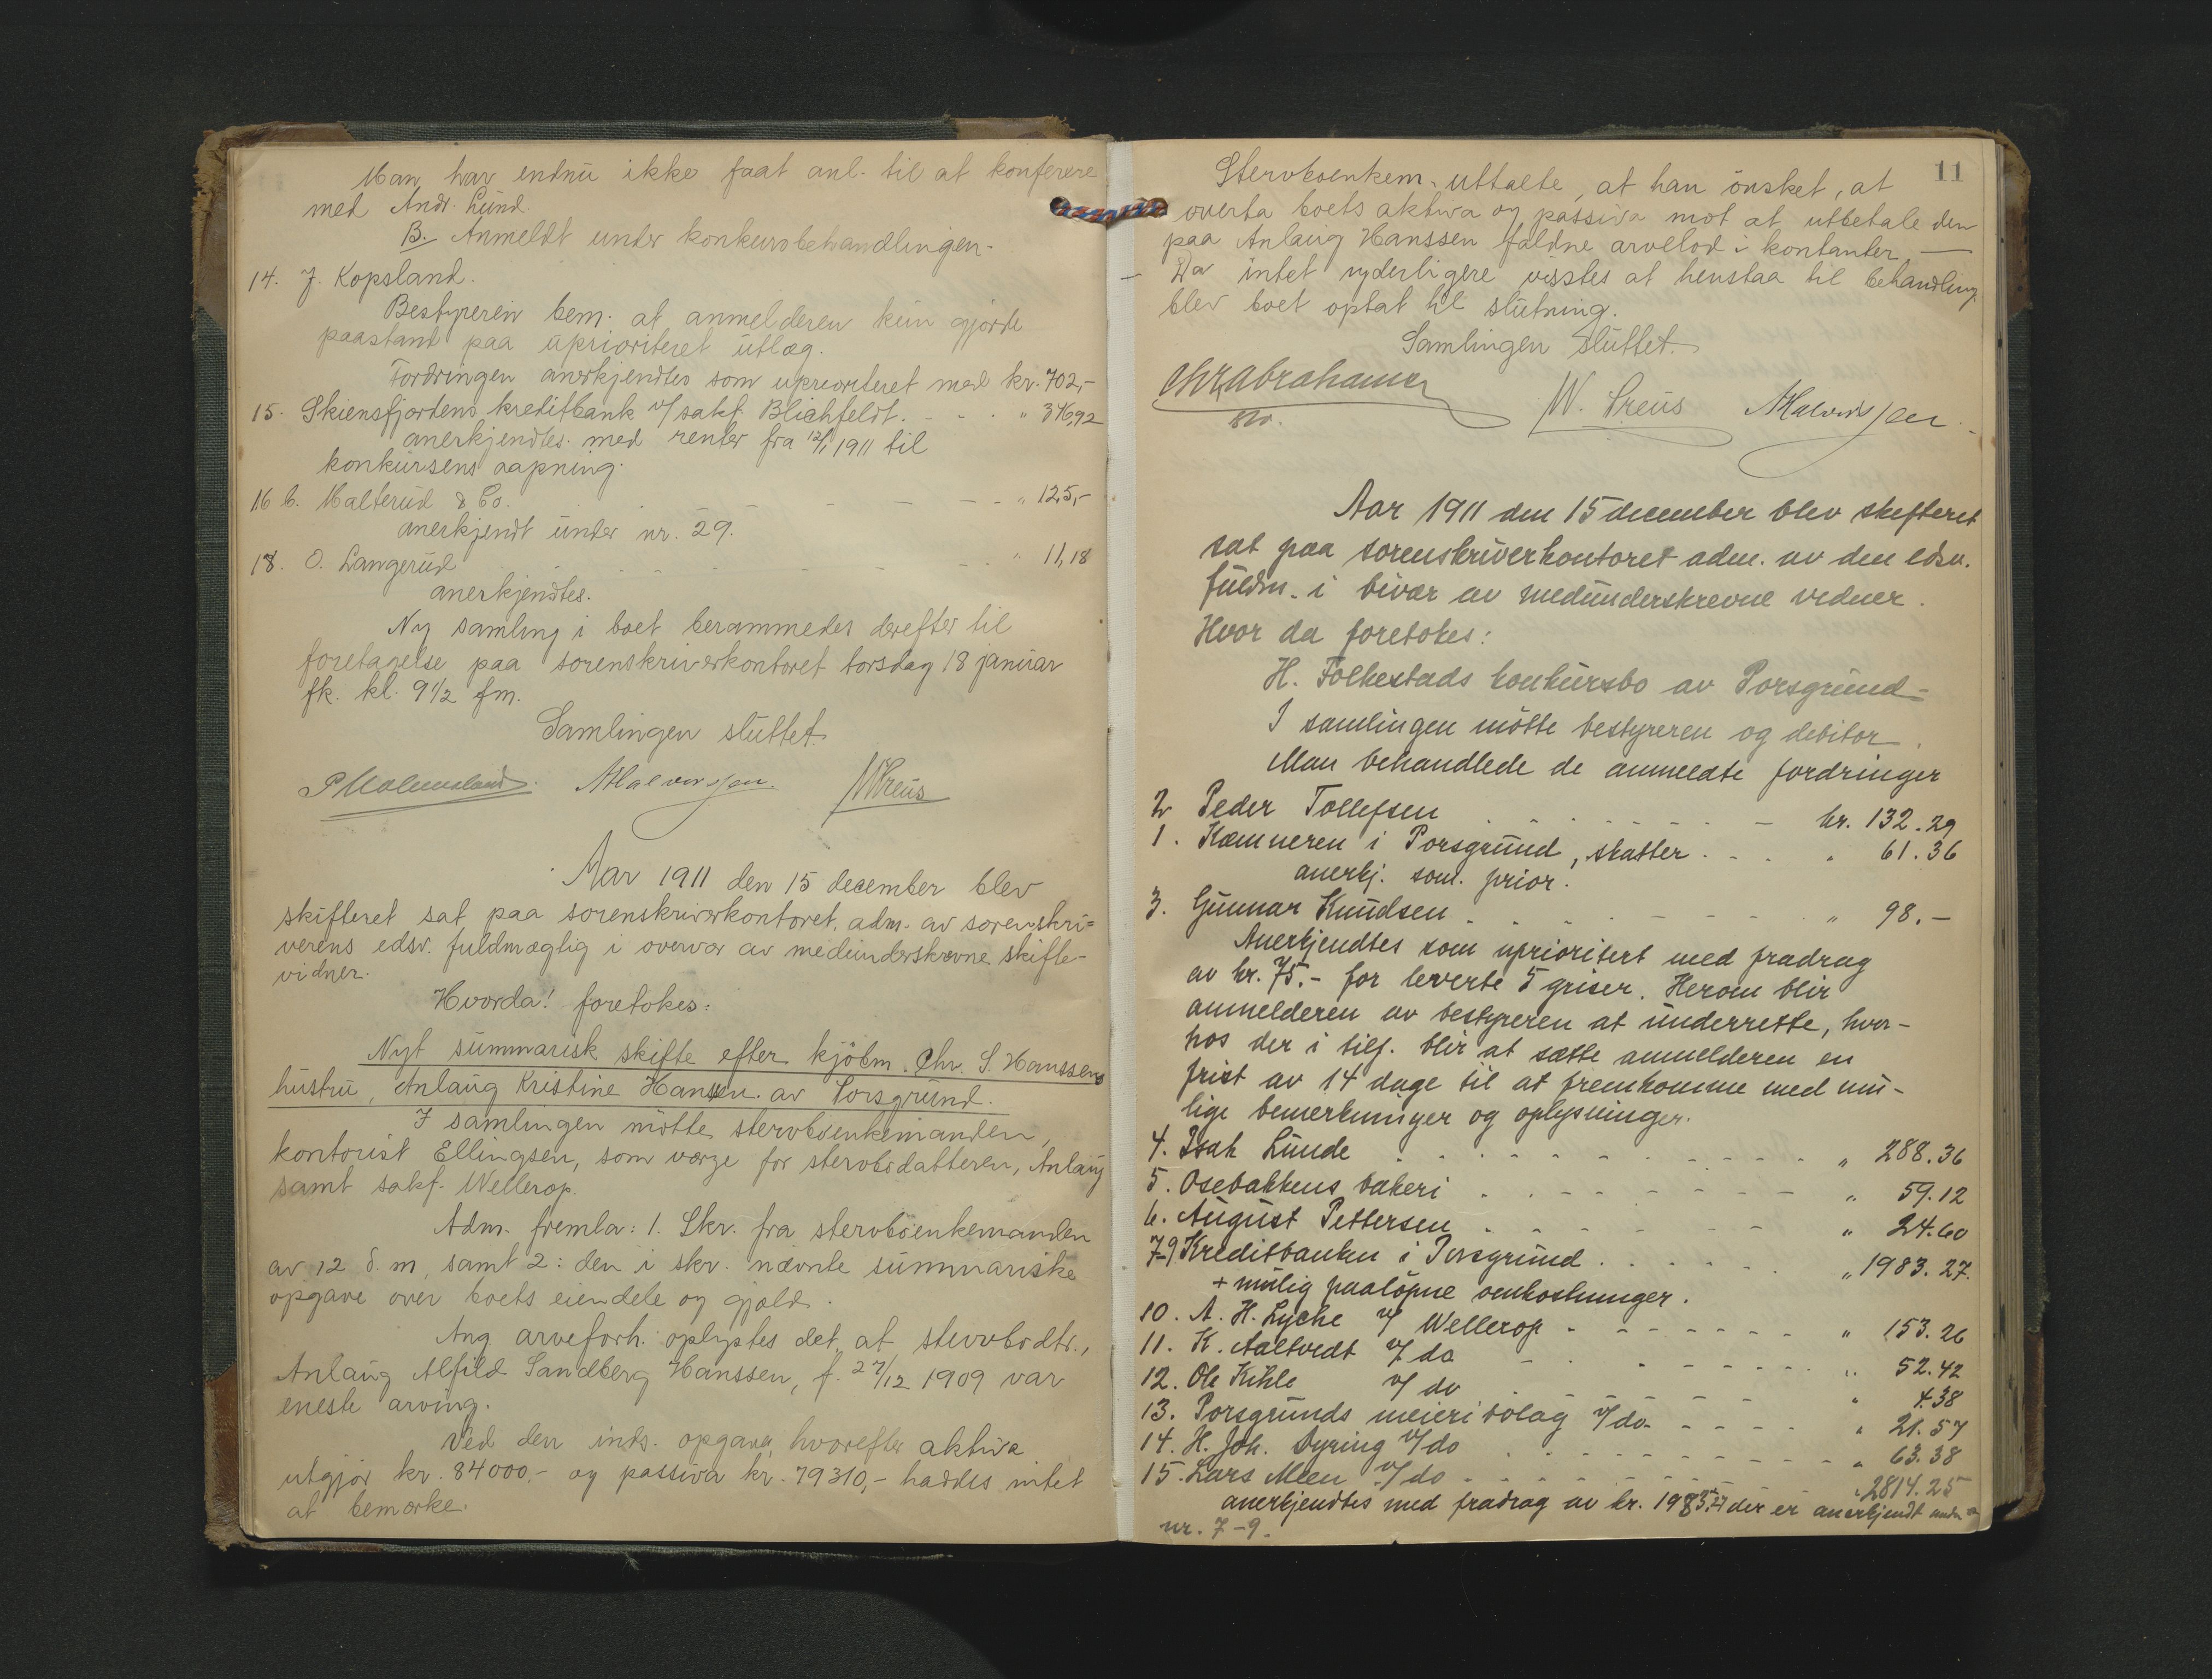 Man har endnu ikke faat anl. til at konferere
med Andr. Lund.
B. Anmeldt under konkursbehandlingen.
14. J. Kopsland.
Bestyreren bem. at anmelderen kun gjorde
paastand paa uprioriteret utlæg.
Fordringen anerkjendtes som uprioriteret med kr. 702,-
15. Skiensfjordens kreditbank v/ sakf. Blichfeldt. - - - " 346,92
anerkjendtes med renter fra 12/1 1911 til
konkursens aapning.
16 b. Malterud & Co. - - - - " 125,-
anerkjendt under nr. 29.
18. O. Langerud - - - - - - " 11,18
anerkjendtes.
Ny samling i boet berammedes derefter til
foretagelse paa sorenskriverkontoret torsdag 18 januar
fk. kl. 9 1/2 fm.
Samlingen sluttet.
AHalvorsen. WPreus
Aar 1911 den 15 december blev
skifteret sat paa sorenskriverkontoret, adm. av sorenskri=
verens edsv. fuldmægtig i overvær av medunderskrevne skifte-
vidner.
Hvorda! foretokes:
Nyt summarisk skifte efter kjøbm. Chr. S. Hanssens
hustru, Anlaug Kristine Hansen av Porsgrund.
I samlingen møtte stervboenkemanden,
kontorist Ellingsen, som værge for stervbodatteren, Anlaug
samt sakf. Wellerop.
Adm. fremla: 1. Skr. fra stervboenkemanden
av 12 d. m, samt 2: den i skr. nævnte summariske
opgave over boets eiendele og gjæld.
Ang. arveforh. oplystes det, at stervbodtr.,
Anlaug Alfild Sandberg Hanssen, f. 27/12 1909 var
eneste arving.
Ved den inds. opgave, hvorefter aktiva
utgjør kr. 84000,- og passiva kr. 79310,- haddes intet
at bemerke.
11
Stervboenkem. uttalte, at han ønsket, at
overta boets aktiva og passiva mot at utbetale den
paa Anlaug Hanssen faldne arvelod i kontanter. —
- Da intet yderligere visstes at henstaa til behandling
blev boet optat til slutning.
Samlingen sluttet.
Chr Abrahamsen
W. Preus AHalvorssen
Aar 1911 den 15 december blev skifteret
sat paa sorenskriverkontoret adm. av den edsv.
fuldm. i bivær av medunderskrevne vidner.
Hvor da foretokes:
H. Folkestads konkursbo av Porsgrund-
I samlingen møtte bestyreren og debitor.
Man behandlede de anmeldte fordringer
2 Peder Tollefsen - - - - - - - kr. 132.29
1. Kæmneren i Porsgrund, skatter. - - . " 61.36
anerkj. som. prior.
3. Gunnar Knudsen - - - - - - - " 98.-
Anerkjendtes som uprioritert med fradrag
av kr. 75.- for leverte 5 griser. Herom blir
anmelderen av bestyreren at underrette, hvor-
hos der i tilf. blir at sætte anmelderen en
frist av 14 dage til at fremkomme med mu-
lige bemerkninger og oplysninger.
4. Isak Lunde - - - - - - - " 288.36
5. Osebakkens bakeri - - - - - - " 59.12
6. August Pettersen - - - - - - " 24.60
7-9 Kreditbanken i Porsgrund . . . . . . " 1983.27.
+ mulig paaløpne omkostninger.
10. A. H. Lyche v/ Wellerop - - - - - - " 153.26
11. K. Aaltvedt v/ do - - - - - - " 52.42
12. Ole Kihle v/ do - - - - - - " 4.38
13. Porsgrunds meieribolag v/do - - - - " 21.57
14. H. Joh. Dyring v/do - - - - - - " 63.38
15. Lars Moen v/do - - - - - - " 2814.25
anerkjendtes med fradrag av kr. 1983.27 der er anerkjendt under
nr. 7-9.